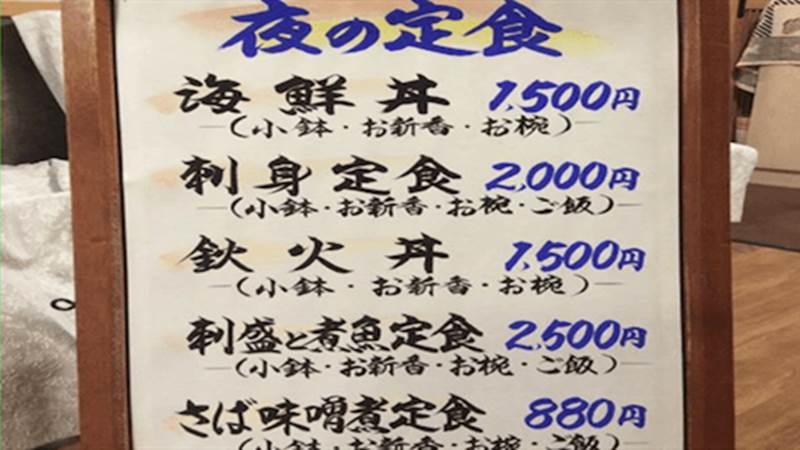 夜の定食
海鮮丼 1,500円
(小鉢・お新香・お椀)
刺身定食 2,000円
(小鉢・お新香・お椀・ご飯)
鉄火丼 1,500円
(小鉢・お新香・お椀)
刺盛と煮魚定食 2,500円
(小鉢・お新香・お椀・ご飯)
さば味噌煮定食 880円
(小鉢・お新香・お椀・ご飯)